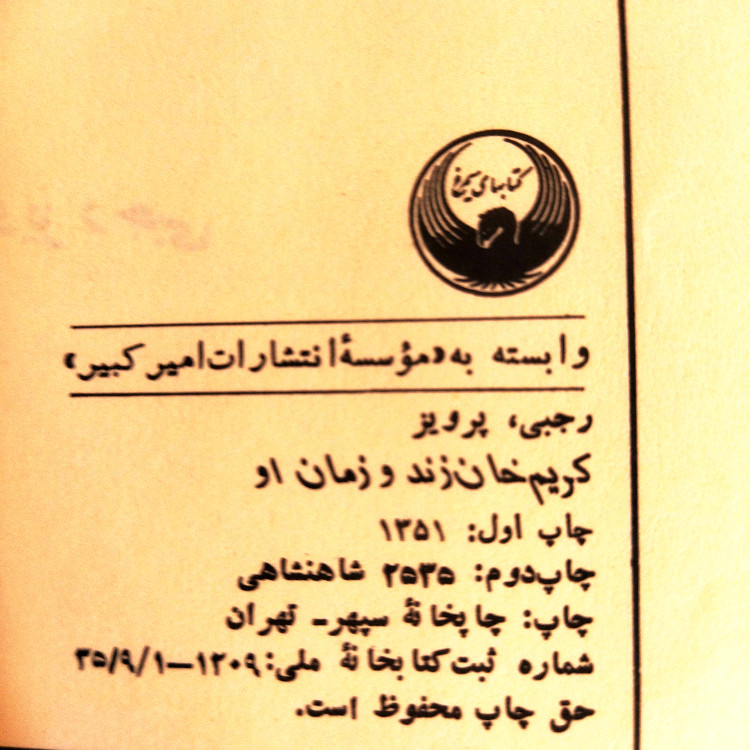 کتابهای سیمرغ
وابسته به «مؤسسهٔ انتشارات امیر کبیر»
رجبی، پرویز
کریم‌خان زند و زمان او
چاپ اول: ۱۳۵۱
چاپ دوم: ۲۵۳۵ شاهنشاهی
چاپ: چاپخانهٔ سپهر ـ تهران
شماره ثبت کتابخانهٔ ملی: ۱۲۰۹—۳۵/۹/۱
حق چاپ محفوظ است.